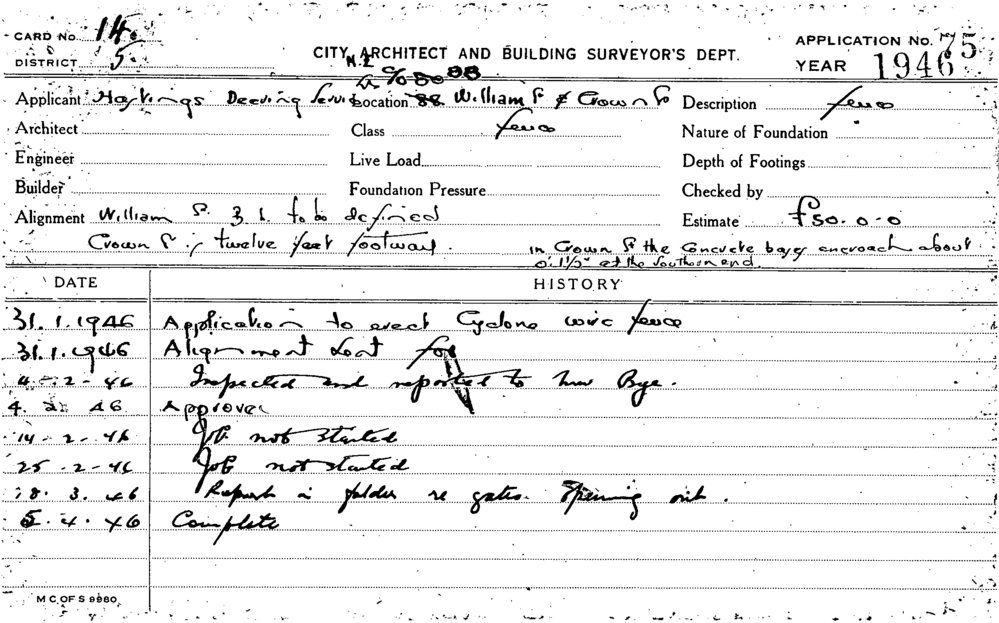 CARD No. 14.
DISTRICT 5.
CITY ARCHITECT AND BUILDING SURVEYOR'S DEPT.
APPLICATION No. 75
YEAR 1946
N.E. 88
Applicant Hastings Deering Service Location 88 William St & Crown St Description fence
Architect Class fence Nature of Foundation
Engineer Live Load Depth of Footings
Builder Foundation Pressure Checked by
Alignment William St 3 L to be defined Estimate £50.0.0
Crown St is twelve feet footway. in Crown St the concrete bases encroach about
0' 1½" at the Southern end.
DATE HISTORY
31.1.1946 Application to erect Cyclone wire fence
31.1.1946 Alignment
4-2-46 Inspected and reported to Mr Bye.
4.2.46 Approved
14-2-46 Job not started
25-2-46 Job not started
18.3.46 Report in folder re gates opening out.
5.4.46 Complete
M C OF S 9980